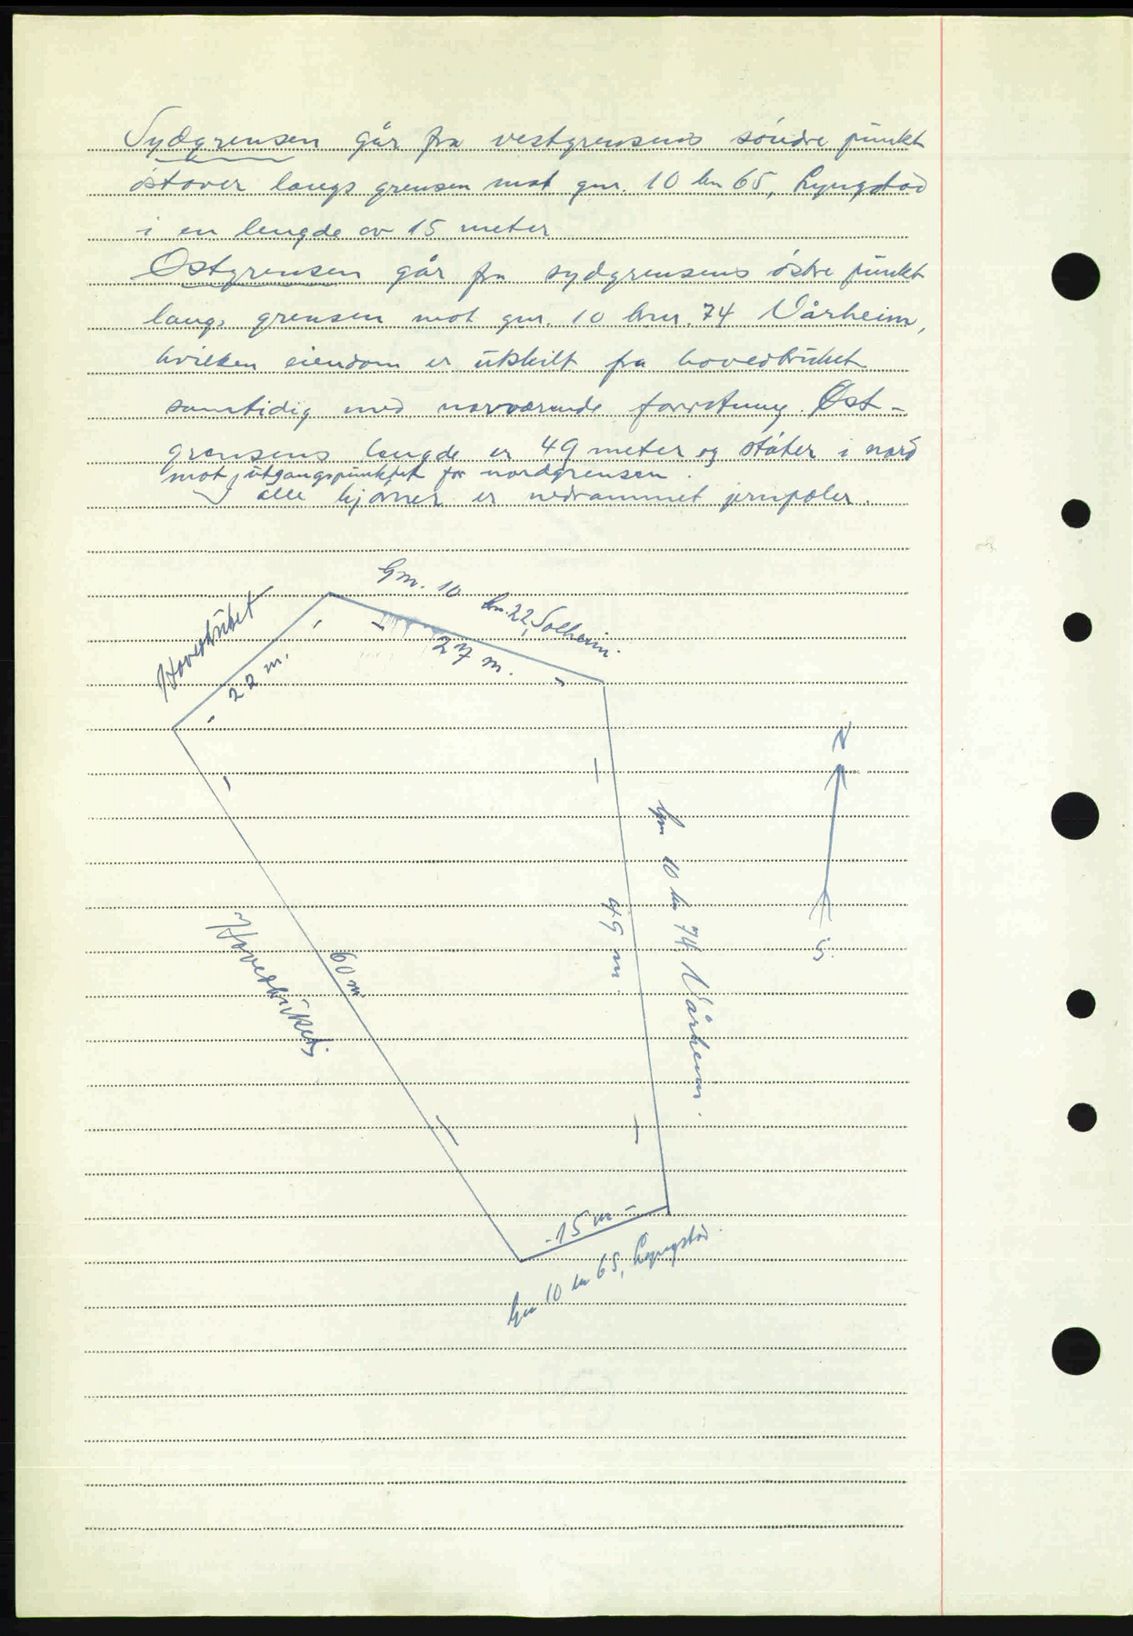 Sydgrensen går fra vestgrensens söndre punkt
östover langs grensen mot gnr. 10 bn 65, Lyngstad
i en lengde av 15 meter
Östgrensen går fra sydgrensens östre punkt
langs grensen mot gnr. 10 bnr. 74 Vårheim,
hvilken eiendom er utskilt fra hovedbruket
samtidig med nærværende forretning. Öst-
grensens lengde er 49 meter og stöter i nord
mot utgangspunktet for nordgrensen.
I alle hjörner er nedrammet jernpæler.
Gnr. 10 bn. 22, Solheim.
Hovedbruket
22 m.
27 m.
N
Gn 10 bn 74 Vårheim.
49 m.
S.
60 m
Hovedbruket
15 m
Gn 10 bn 65, Lyngstad.